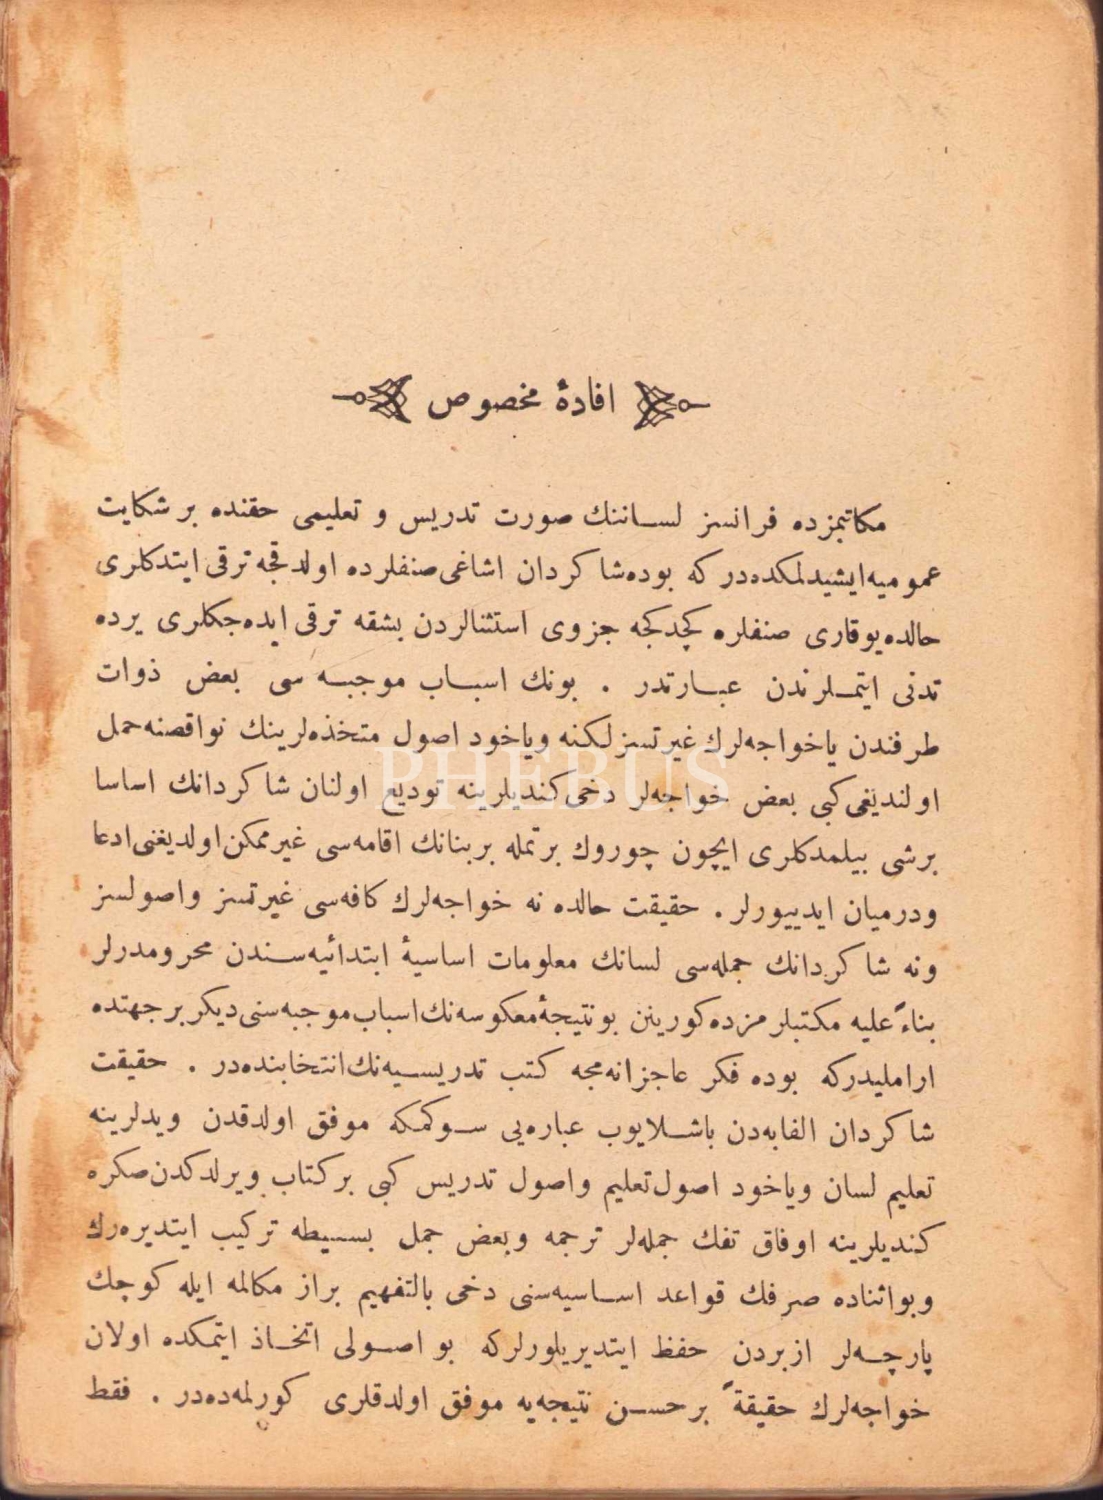 افادهٔ مخصوص
مكاتبمزده فرانسز لساننك صورت تدريس و تعليمى حقنده بر شكايت
عموميه ايشيدلمكده در كه بوده شاكردان اشاغى صنفلرده اولدقجه ترقى ايتدكلرى
حالده يوقارى صنفلره كچدكجه جزوى استثنالردن بشقه ترقى ايده جكلرى يرده
تدنى ايتملرندن عبارتدر . بونك اسباب موجبه سى بعض ذوات
طرفندن يا خواجه لرك غيرتسزلكنه وياخود اصول متخذه لرينك نواقصنه حمل
اولنديغى كبى بعض خواجه لر دخى كنديلرينه توديع اولنان شاكردانك اساسا
برشى بيلمدكلرى ايچون چوروك بر تمله بر بنانك اقامه سى غير ممكن اولديغنى ادعا
ودرميان ايدييورلر . حقيقت حالده نه خواجه لرك كافه سى غيرتسز واصولسز
ونه شاكردانك جمله سى لسانك معلومات اساسيهٔ ابتدائيه سندن محرومدرلر
بناءً عليه مكتبلرمزده كورينن بو نتيجهٔ معكوسه نك اسباب موجبه سنى ديكر بر جهتده
ارامليدركه بوده فكر عاجزانه مجه كتب تدريسيه نك انتخابنده در . حقيقت
شاكردان الفابه دن باشلايوب عباره يى سوكمكه موفق اولدقدن ويدلرينه
تعليم لسان وياخود اصول تعليم واصول تدريس كبى بر كتاب ويرلدكدن صكره
كنديلرينه اوفاق تفك جمله لر ترجمه وبعض جمل بسيطه تركيب ايتديره رك
وبواثناده صرفك قواعد اساسيه سنى دخى بالتفهيم براز مكالمه ايله كوچك
پارچه لر ازبردن حفظ ايتديريلورلركه بو اصولى اتخاذ ايتمكده اولان
خواجه لرك حقيقةً بر حسن نتيجه يه موفق اولدقلرى كورلمه ده در . فقط
PHEBUS